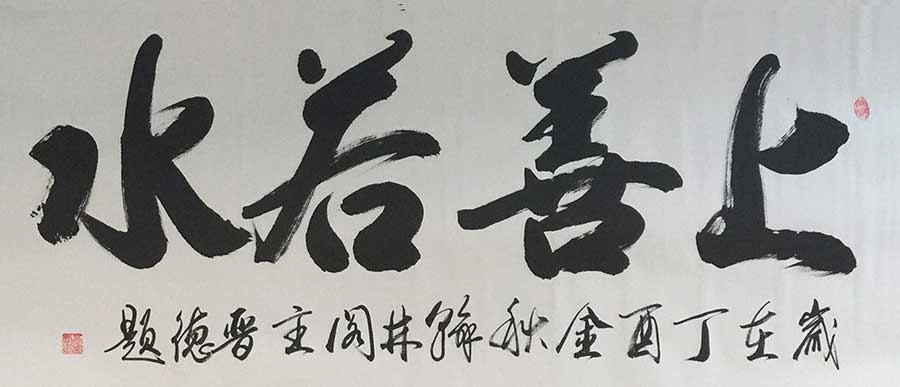 上善若水
歲在丁酉金秋翰林阁主晋德題